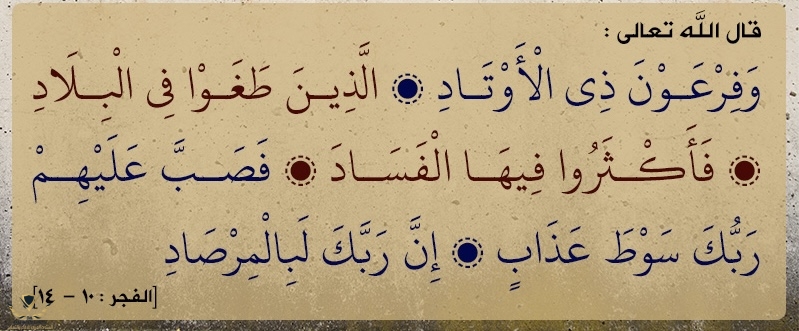 قال الله تعالى :
وَفِرْعَـوْنَ ذِى الْأَوْتَـادِ ۞ الَّذِيـنَ طَغَـوْا فِى الْبِـلَادِ
۞ فَأَكْـثَرُوا فِيهَـا الْفَسَـادَ ۞ فَصَـبَّ عَلَيْهِـمْ
رَبُّكَ سَوْطَ عَذَابٍ ۞ إِنَّ رَبَّكَ لَبِالْمِرْصَادِ
[الفجر : ١٠ - ١٤]